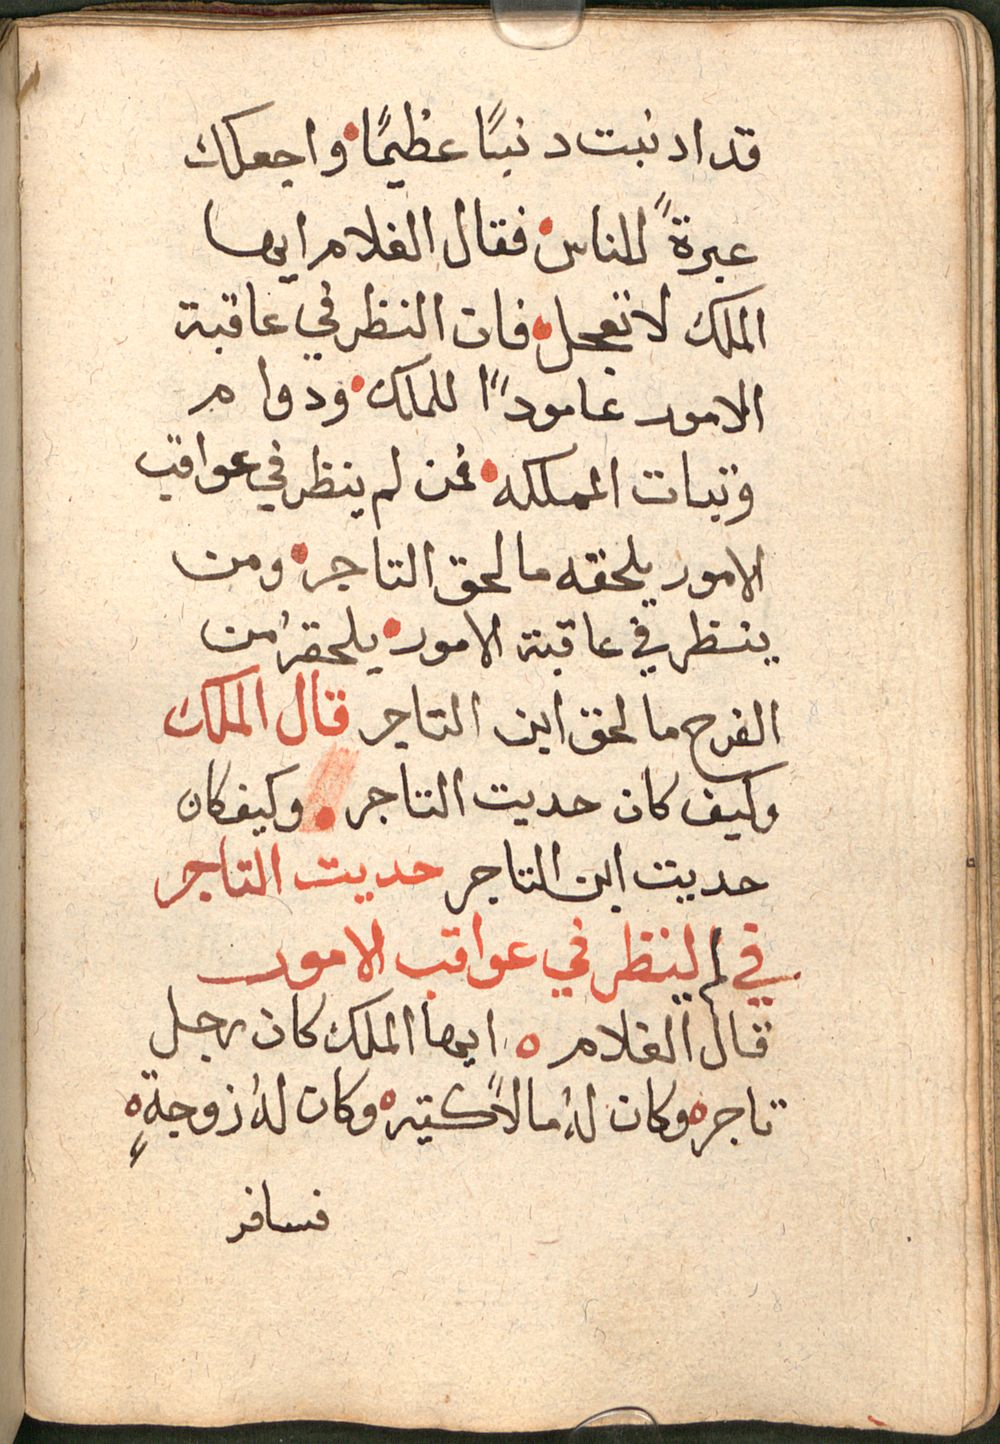 قد ادنبت دنبًا عظيمًا واجعلك
عبرةً للناس فقال الغلام ايها
الملك لا تعجل فان النظر في عاقبة
الامور عامودًا للملك ودوام
وتبات المملكه فمن لم ينظر في عواقب
الامور يلحقه ما لحق التاجر ومن
ينظر في عاقبة الامور يلحقه من
الفرح ما لحق ابن التاجر قال الملك
وكيف كان حديت التاجر وكيف كان
حديت ابن التاجر حديت التاجر
في لم الينظر في عواقب الامور
قال الغلام ايها الملك كان رجل
تاجر وكان لهُ مالاً كتير وكان لهُ زوجةٍ
فسافر